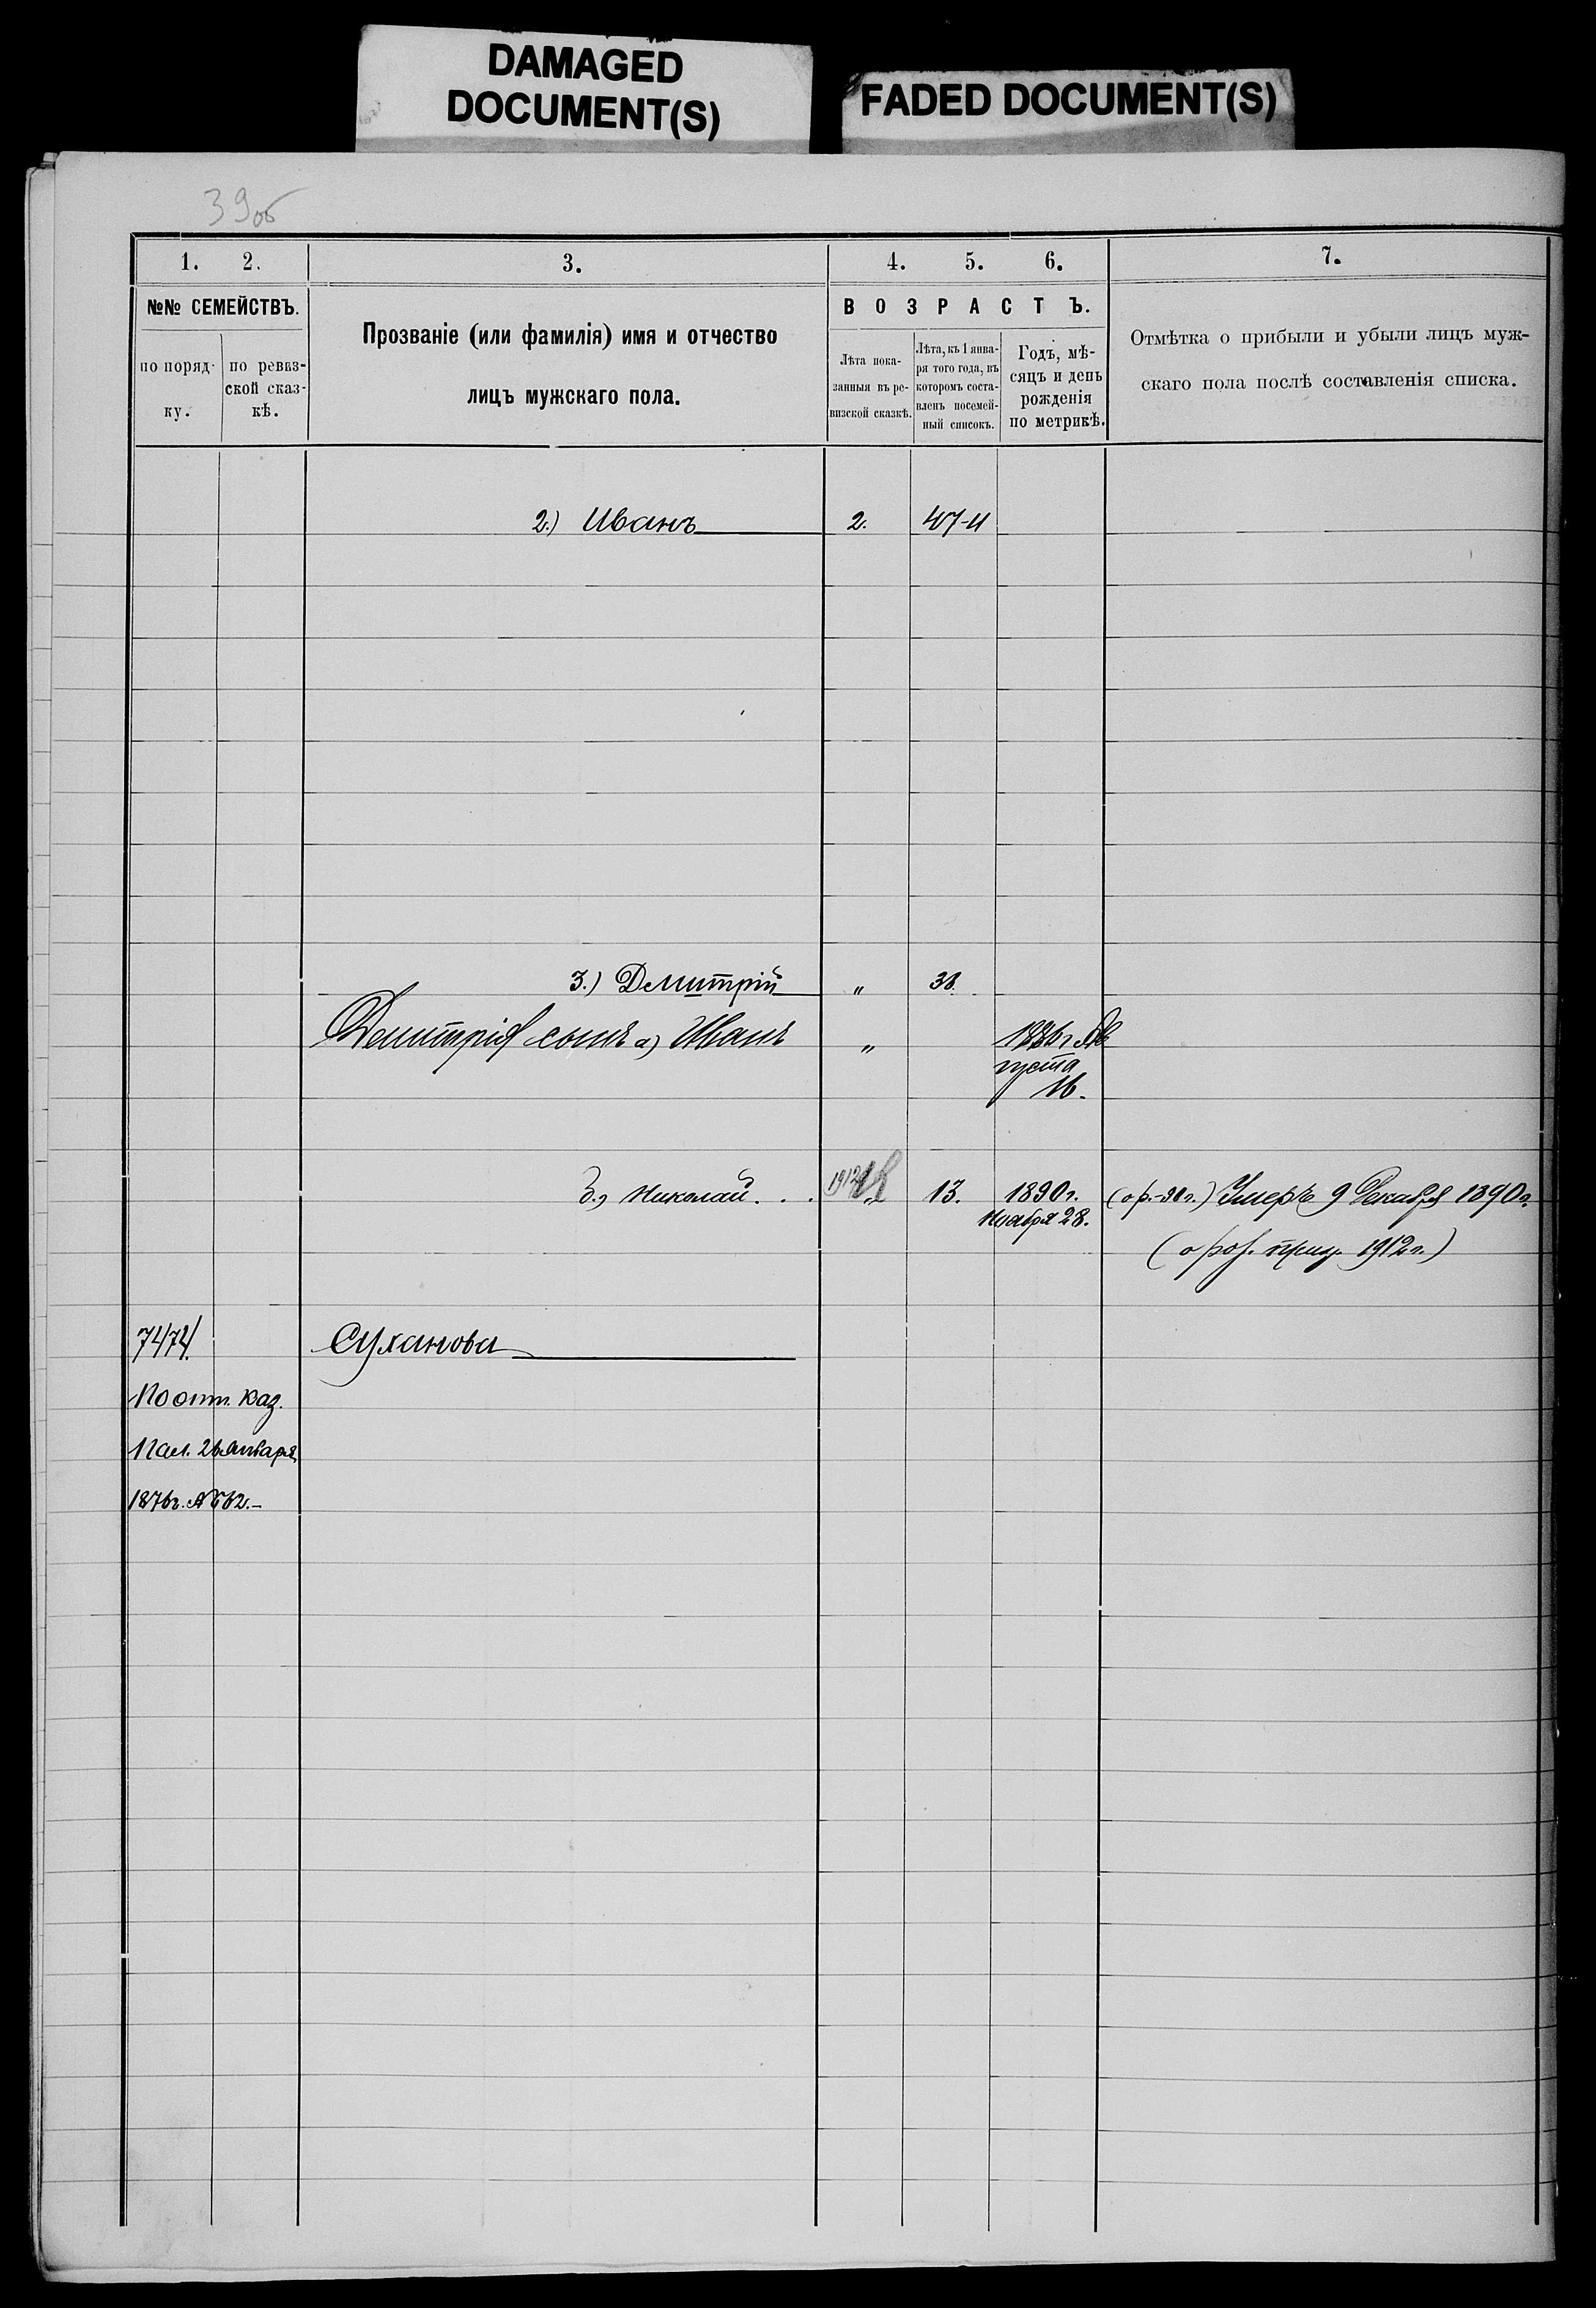 DAMAGED
DOCUMENT(S)
FADED DOCUMENT(S)
39об
1. 2. 3. 4. 5. 6. 7.
№№ СЕМЕЙСТВЪ.
по поряд-
ку.
по ревиз-
ской сказ-
кѣ.
Прозваніе (или фамилія) имя и отчество
лицъ мужскаго пола.
ВОЗРАСТЪ.
Лѣта пока-
занныя въ ре-
визской сказкѣ.
Лѣта, къ 1 янва-
ря того года, въ
которомъ соста-
вленъ посемей-
ный списокъ.
Годъ, мѣ-
сяцъ и день
рожденія
по метрикѣ.
Отмѣтка о прибыли и убыли лицъ муж-
скаго пола послѣ составленія списка.
2.) Иванъ 2.
3.) Дмитрій "
Дмитрія сынъ а) Иванъ " 1886г. Ав
густа
16.
б., Николай . . . 1912 " 13. 1890г. Умеръ 9 Декабря 1890г.
Ноября 28.
1912г.)
74/74. Суханова
По отп. Каз.
Пал. 26 Января
1876г. № 62.-